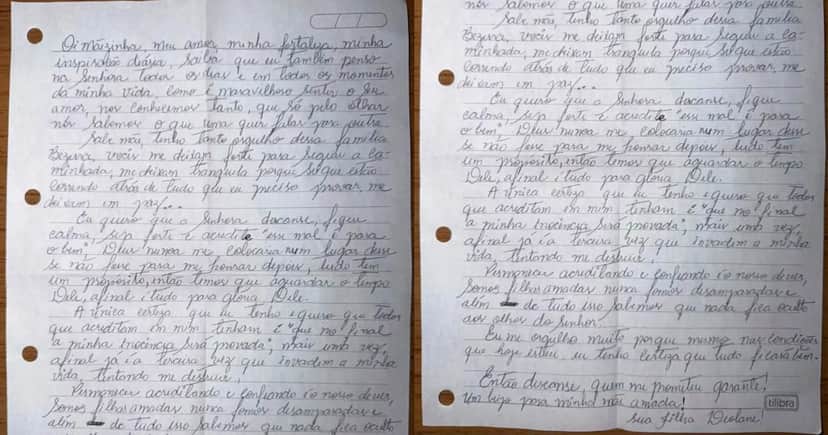 Oi mãizinha, meu amor, minha fortaleza, minha
inspiração diária, saiba que eu também penso
na senhora todos os dias e em todos os momentos
da minha vida, como é maravilhoso sentir o seu
amor, nos conhecemos tanto, que só pelo olhar
nós sabemos o que uma quer falar para outra.
Sabe mãe, tenho tanto orgulho dessa família
Bezerra, vocês me deixam forte para seguir a ca-
minhada, me deixam tranquila porque sei que estão
correndo atrás de tudo que eu preciso provar, me
deixam em paz...
Eu quero que a senhora descanse, fique
calma, seja forte e acredite "esse mal é para
o bem", Deus nunca me colocaria num lugar desse
se não fosse para me honrar depois, tudo tem
um propósito, então temos que aguardar o tempo
Dele, afinal é tudo para glória Dele.
A única certeza que eu tenho e quero que todos
que acreditam em mim tenham é "que no final
a minha inocência será provada", mais uma vez,
afinal já é a terceira vez que invadem a minha
vida, tentando me destruir.
Permanecer acreditando e confiando é o nosso dever,
somos filhas amadas nunca fomos desamparadas e
além de tudo isso sabemos que nada fica oculto
nós sabemos o que uma quer falar para outra.
Sabe mãe, tenho tanto orgulho dessa família
Bezerra, vocês me deixam forte para seguir a ca-
minhada, me deixam tranquila porque sei que estão
correndo atrás de tudo que eu preciso provar, me
deixam em paz...
Eu quero que a senhora descanse, fique
calma, seja forte e acredite "esse mal é para
o bem", Deus nunca me colocaria num lugar desse
se não fosse para me honrar depois, tudo tem
um propósito, então temos que aguardar o tempo
Dele, afinal é tudo para glória Dele.
A única certeza que eu tenho e quero que todos
que acreditam em mim tenham é "que no final
a minha inocência será provada", mais uma vez,
afinal já é a terceira vez que invadem a minha
vida, tentando me destruir.
Permanecer acreditando e confiando é o nosso dever,
somos filhas amadas nunca fomos desamparadas e
além de tudo isso sabemos que nada fica oculto
aos olhos do senhor.
Eu me orgulho muito porque mesmo nas condições
que hoje estou, eu tenho certeza que tudo ficará bem.
Então descanse, quem me prometeu garante!
Um beijo para minha mãe amada!
tilibra
sua filha Deolane!